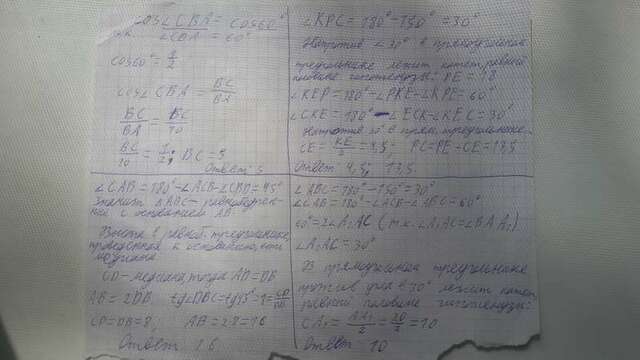 cos∠CBA = cos60°
т.к. ∠CBA = 60°
cos60° = 1/2
cos∠CBA = BC/BA
BC/BA = BC/10
BC/10 = 1/2; BC = 5
Ответ 5
∠KPC = 180° - 150° = 30°
Напротив ∠30° в прямоугольном
треугольнике лежит катет, равный
половине гипотенузы: PE = 18
∠KEP = 180° - ∠PKE - ∠KPE = 60°
∠CKE = 180° - ∠ECK - ∠KEC = 30°
Напротив 30° в прям. треугольнике
CE = KE/2 = 4,5; PC = PE - CE = 13,5
Ответ 4,5; 13,5
∠CAB = 180° - ∠ACB - ∠CBD = 45°
Значит △ABC - равнобедрен-
ный с основанием AB.
Высота в равноб. треугольнике,
проведенная к основанию, есть
медиана
CD - медиана, тогда AD = DB
AB = 2DB tg∠DBC = tg45° = 1 = CD/DB
CD = DB = 8; AB = 2·8 = 16
Ответ 16
∠ABC = 180° - 150° = 30°
∠CAB = 180° - ∠ACB - ∠ABC = 60°
60° = 2∠A₁AC (т.к. ∠A₁AC = ∠BAA₁)
∠A₁AC = 30°
В прямоугольном треугольнике
против угла в 30° лежит катет,
равный половине гипотенузы:
CA₁ = AA₁/2 = 20/2 = 10
Ответ 10